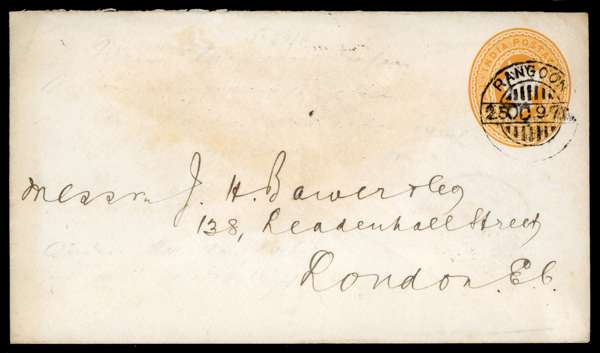 INDIA POSTAGE
RANGOON
25 OC 97
Messrs J. H. Bawer & Co
138, Leadenhall Street
London. E.C.